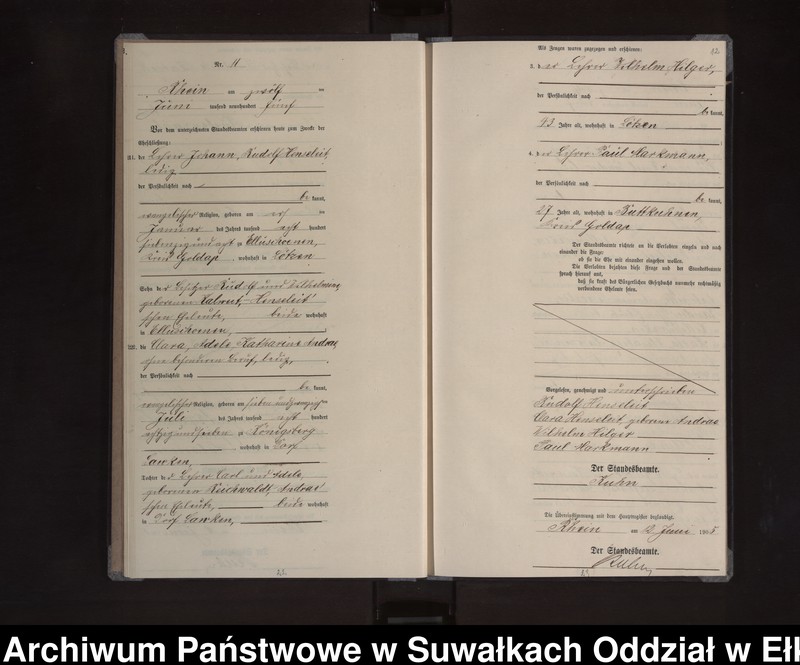 Nr. 11
Rhein am zwölf ten
Juni tausend neunhundert fünf
Vor dem unterzeichneten Standesbeamten erschienen heute zum Zwecke der
Eheschließung:
1. der Lehrer Johann, Rudolf Henseleit,
ledig
der Persönlichkeit nach
be kannt,
evangelischer Religion, geboren am ten
Januar des Jahres tausend acht hundert
siebenzig und acht zu
Kreis Goldap, wohnhaft in Lötzen
Sohn des Besitzer Rudolf und Wilhelmine,
geborenen Henseleit'
schen Eheleute, beide wohnhaft
in
2. die Clara, Adele Katharina Andras
ohne besonderen Beruf, ledig,
der Persönlichkeit nach
be kannt,
evangelischer Religion, geboren am sieben und zwanzigsten
Juli des Jahres tausend acht hundert
achtzig und sieben zu Königsberg
wohnhaft in Dorf
Lawken,
Tochter des Lehrer Carl und Adele,
geborenen Andras'
schen Eheleute, beide wohnhaft
in Dorf Lawken,
12.
Als Zeugen waren zugezogen und erschienen:
3. der Lehrer Wilhelm Hilger,
der Persönlichkeit nach
be kannt,
Jahre alt, wohnhaft in Lötzen
4. der Lehrer Paul Markmann,
der Persönlichkeit nach
be kannt,
27 Jahre alt, wohnhaft in Buttkuhnen,
Kreis Goldap
Der Standesbeamte richtete an die Verlobten einzeln und nach
einander die Frage:
ob sie die Ehe mit einander eingehen wollen.
Die Verlobten bejahten diese Frage und der Standesbeamte
sprach hierauf aus,
daß sie kraft des Bürgerlichen Gesetzbuchs nunmehr rechtmäßig
verbundene Eheleute seien.
Vorgelesen, genehmigt und unterschrieben
Rudolf Henseleit
Clara Henseleit geborene Andras
Wilhelm Hilger
Paul Markmann
Der Standesbeamte.
Kuhn
Die Übereinstimmung mit dem Hauptregister beglaubigt.
Rhein am 12 Juni 1905
Der Standesbeamte.
Kuhn
Archiwum Państwowe w Suwałkach Oddział w Ełk